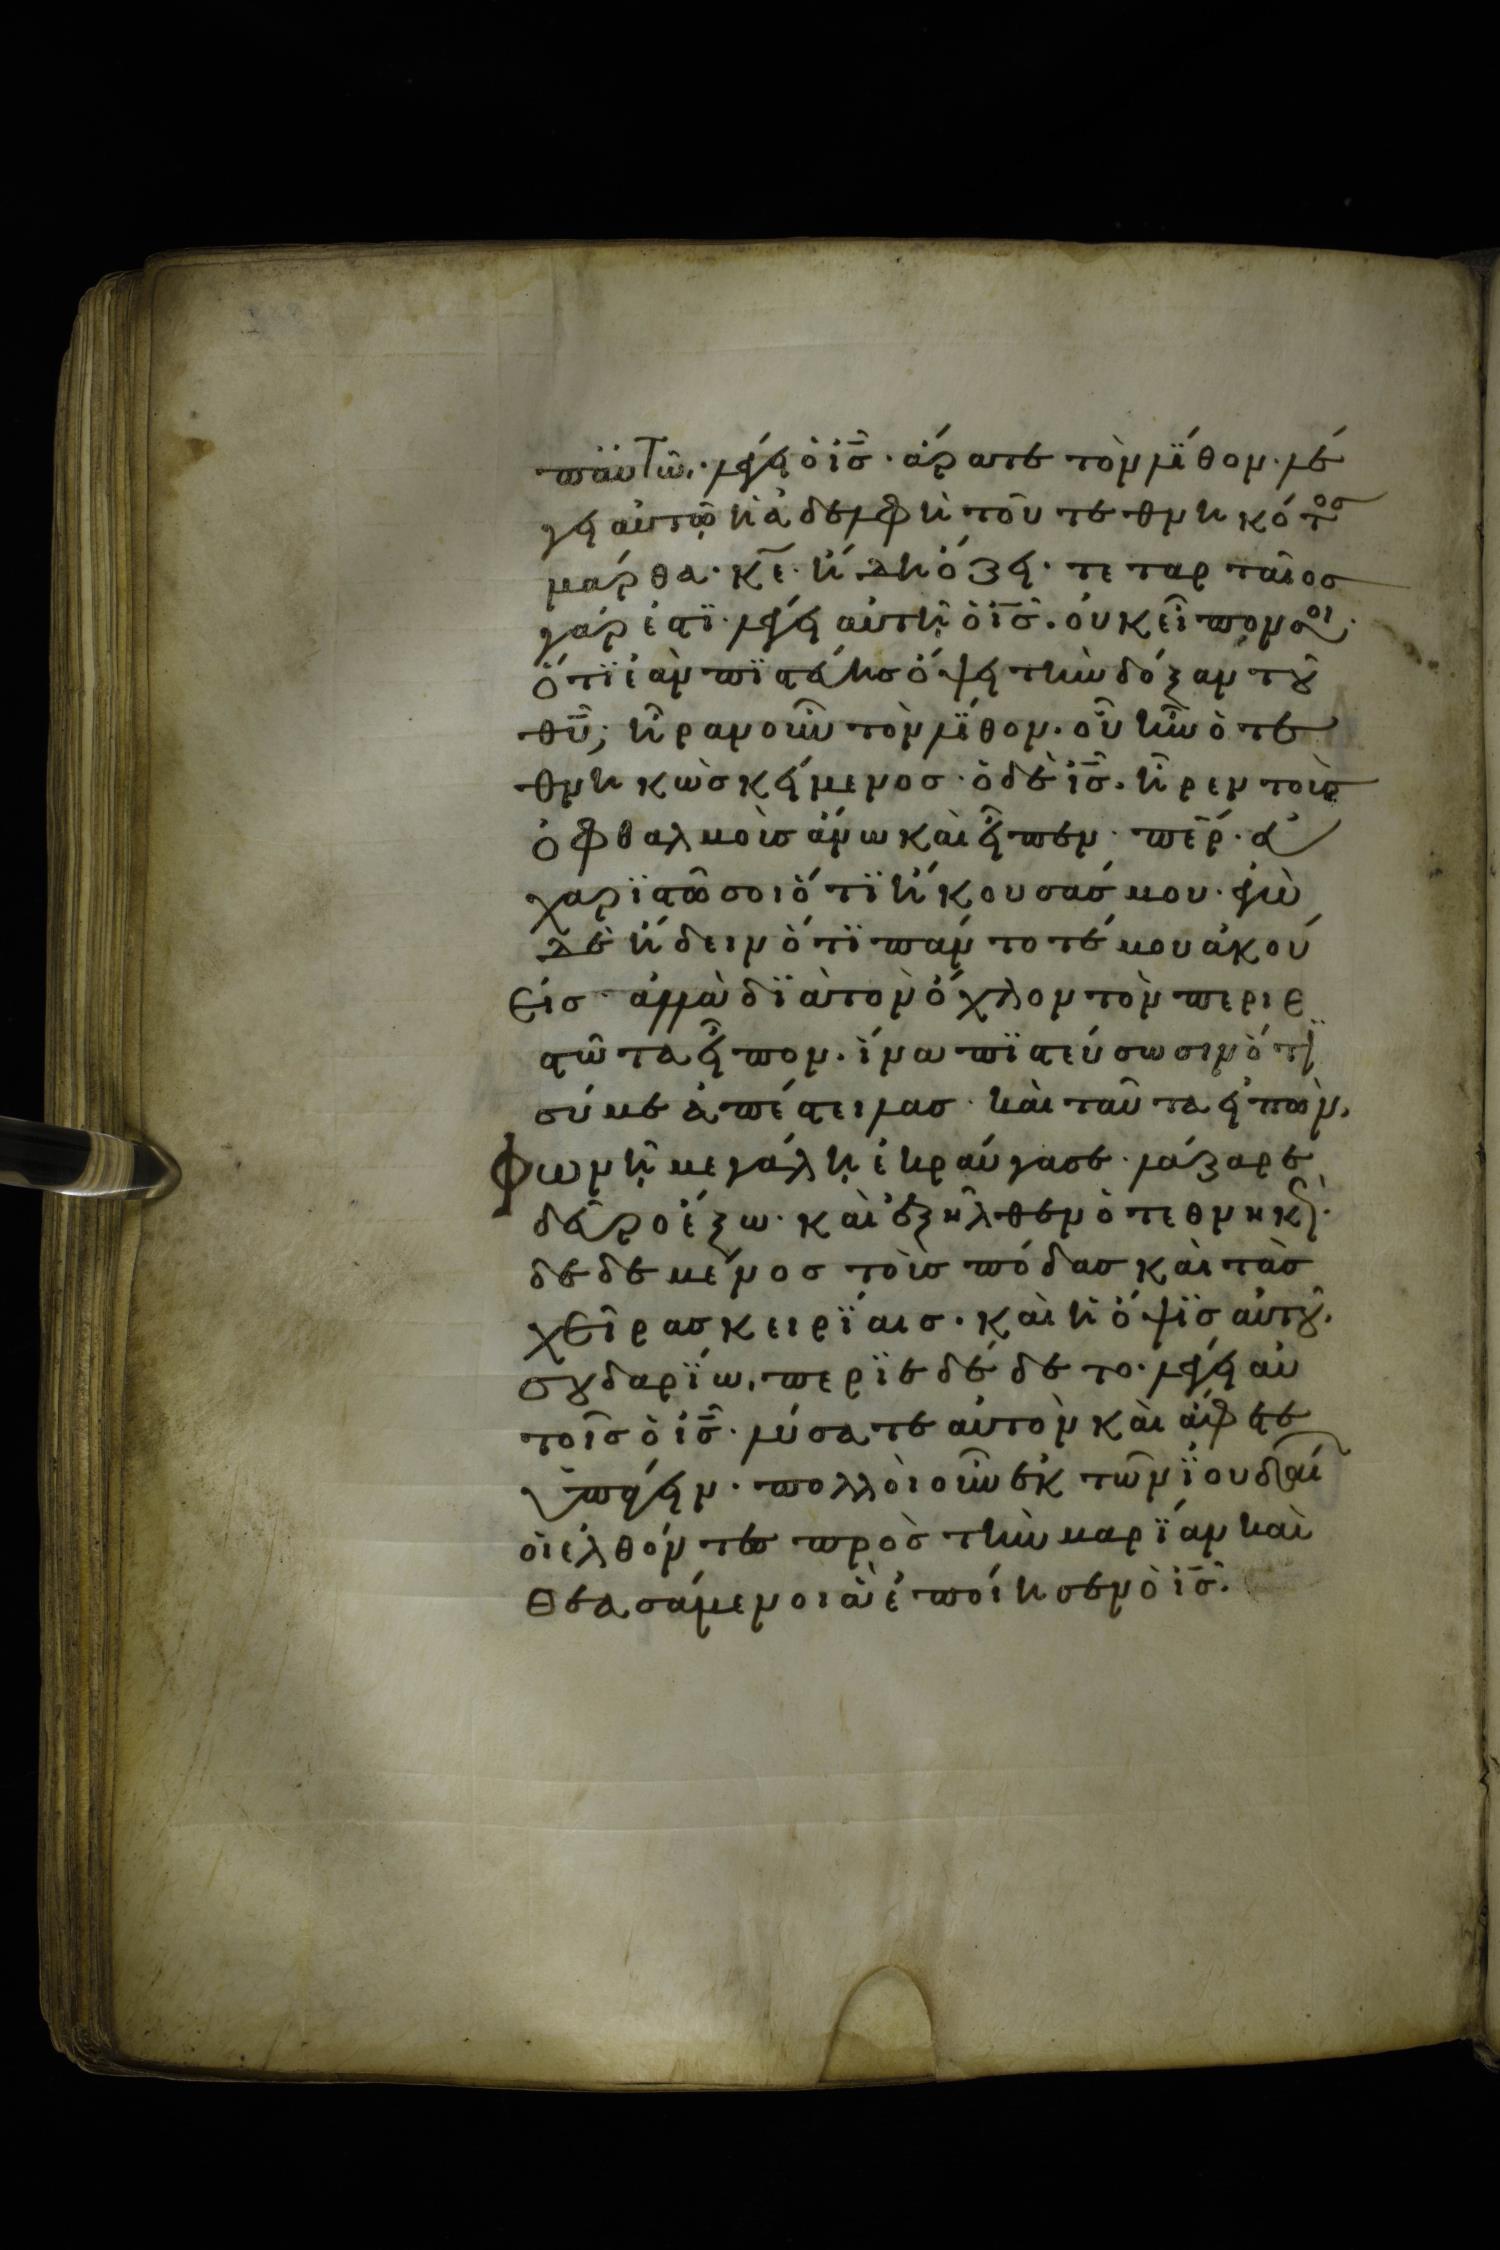 π' αυτῶ. λέγει ὁ ις̅. ἄρατε τὸν λίθον. λέ
γει αὐτῶ ἡ ἀδελφὴ τοῦ τεθνηκότος
μάρθα. κε̅. ἤδη ὄζει. τεταρταῖος
γάρ ἐστϊ. λέγει αὐτῆ ὁ ις̅. οὐκ εἶπον σοι.
ὅτϊ ἐὰν πϊστεύσης ὄψει τὴν δόξαν τοῦ
θυ̅; ἦραν οὖν τὸν λίθον. οὗ ἦν ὁ τε
θνηκὼς κείμενος. ὁ δὲ ις̅. ἦρεν τοὺς
ὀφθαλμοὺς ἄνω καὶ εἶπεν. περ̅. εὐ
χαρϊστῶ σοι ὅτϊ ἤκουσάς μου. ἐγὼ
δὲ ἤδειν ὅτϊ πάντοτέ μου ἀκού
εις. ἀλλὰ δϊὰ τὸν ὄχλον τὸν περιε
στῶτα εἶπον. ἵνα πϊστεύσωσιν ὅτϊ
σύ με ἀπέστειλας. καὶ ταῦτα εἰπὼν.
Φωνῆ μεγάλη ἐκραύγασε. λάζαρε
δεῦρο ἔξω. καὶ ἐξῆλθεν ὁ τεθνηκὼς.
δεδεμένος τοὺς πόδας καὶ τὰς
χεῖρας κειρϊαις. καὶ ἡ ὄψϊς αὐτοῦ.
σουδαρϊω. περϊεδέδετο. λέγει αὐ
τοῖς ὁ ις̅. λύσατε αὐτὸν καὶ ἄφετε
ὑπάγειν. πολλοὶ οὖν ἐκ τῶν ϊουδαί
οἱ ἐλθόντες πρὸς τὴν μαρϊαν καὶ
θεασάμενοι ἃ ἐποίησεν ὁ ις̅.